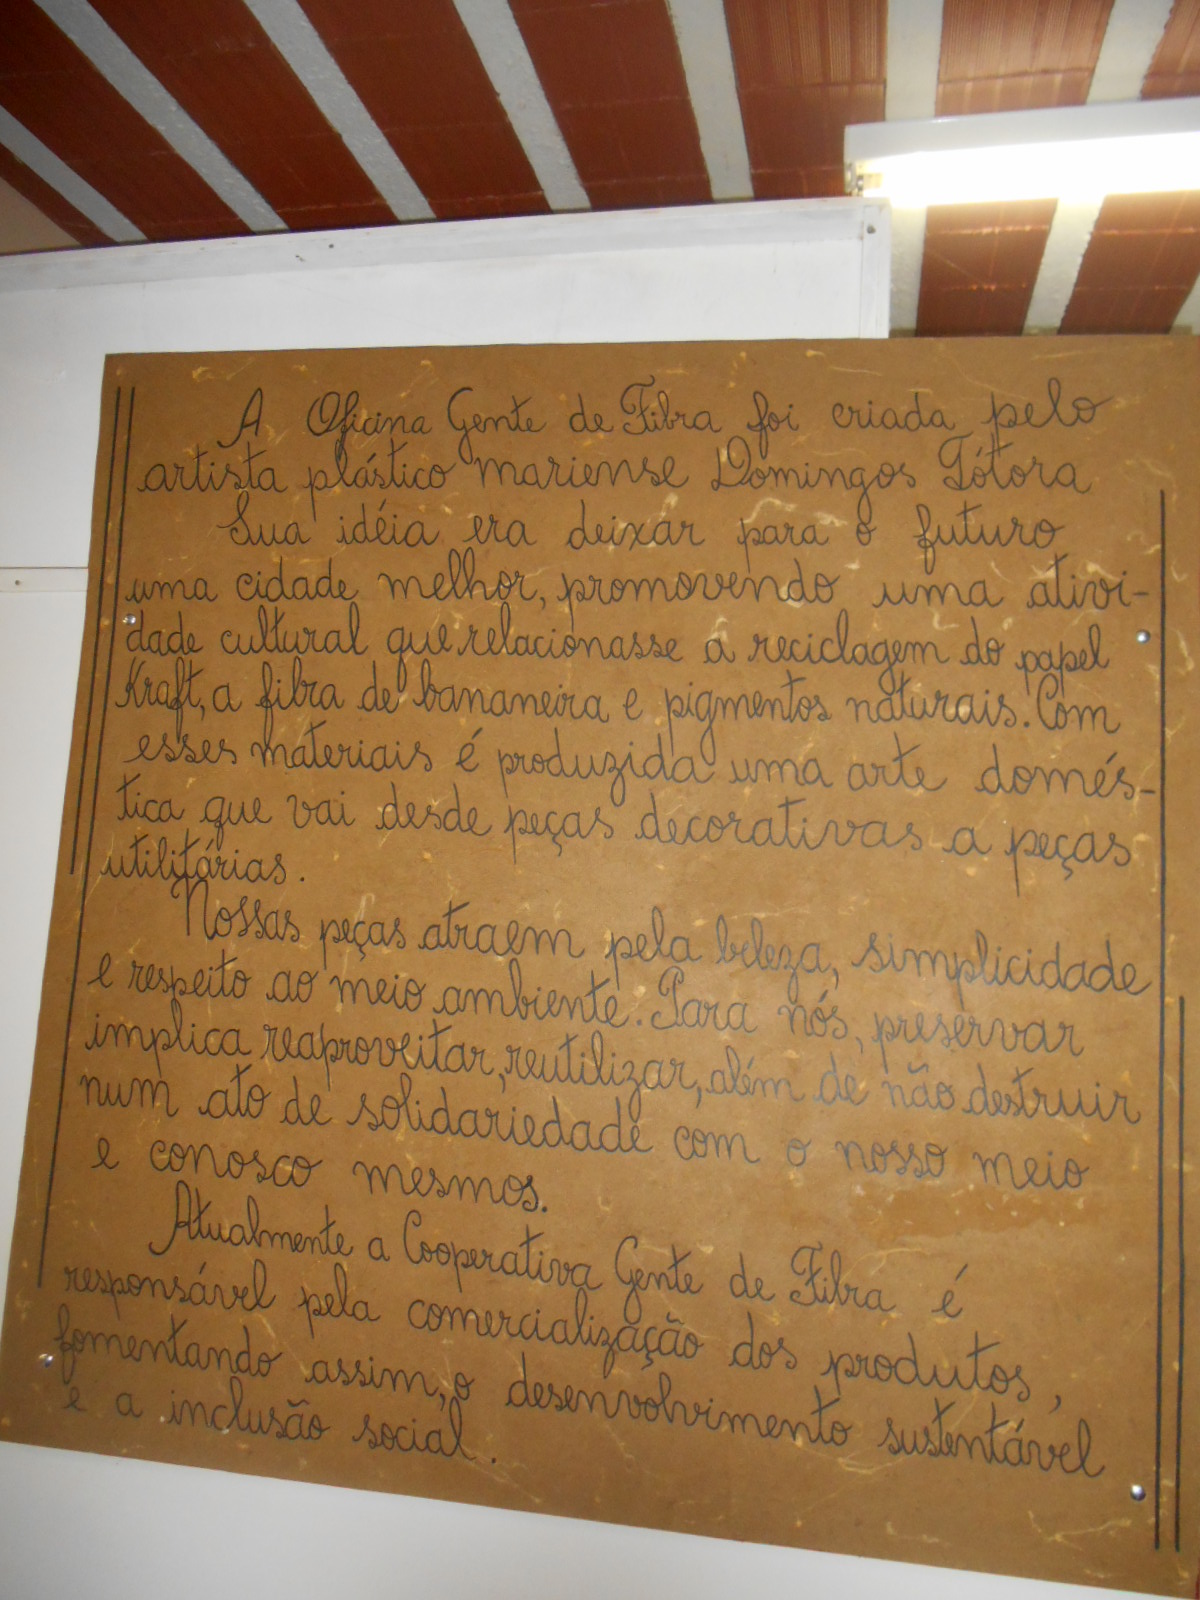 A Oficina Gente de Fibra foi criada pelo
artista plástico mariense Domingos Tótora
Sua idéia era deixar para o futuro
uma cidade melhor, promovendo uma ativi-
dade cultural que relacionasse a reciclagem do papel
Kraft, a fibra de bananeira e pigmentos naturais. Com
esses materiais é produzida uma arte domés-
tica que vai desde peças decorativas a peças
utilitárias.
Nossas peças atraem pela beleza, simplicidade
e respeito ao meio ambiente. Para nós, preservar
implica reaproveitar, reutilizar, além de não destruir
num ato de solidariedade com o nosso meio
e conosco mesmos.
Atualmente a Cooperativa Gente de Fibra é
responsável pela comercialização dos produtos,
fomentando assim, o desenvolvimento sustentável
e a inclusão social.